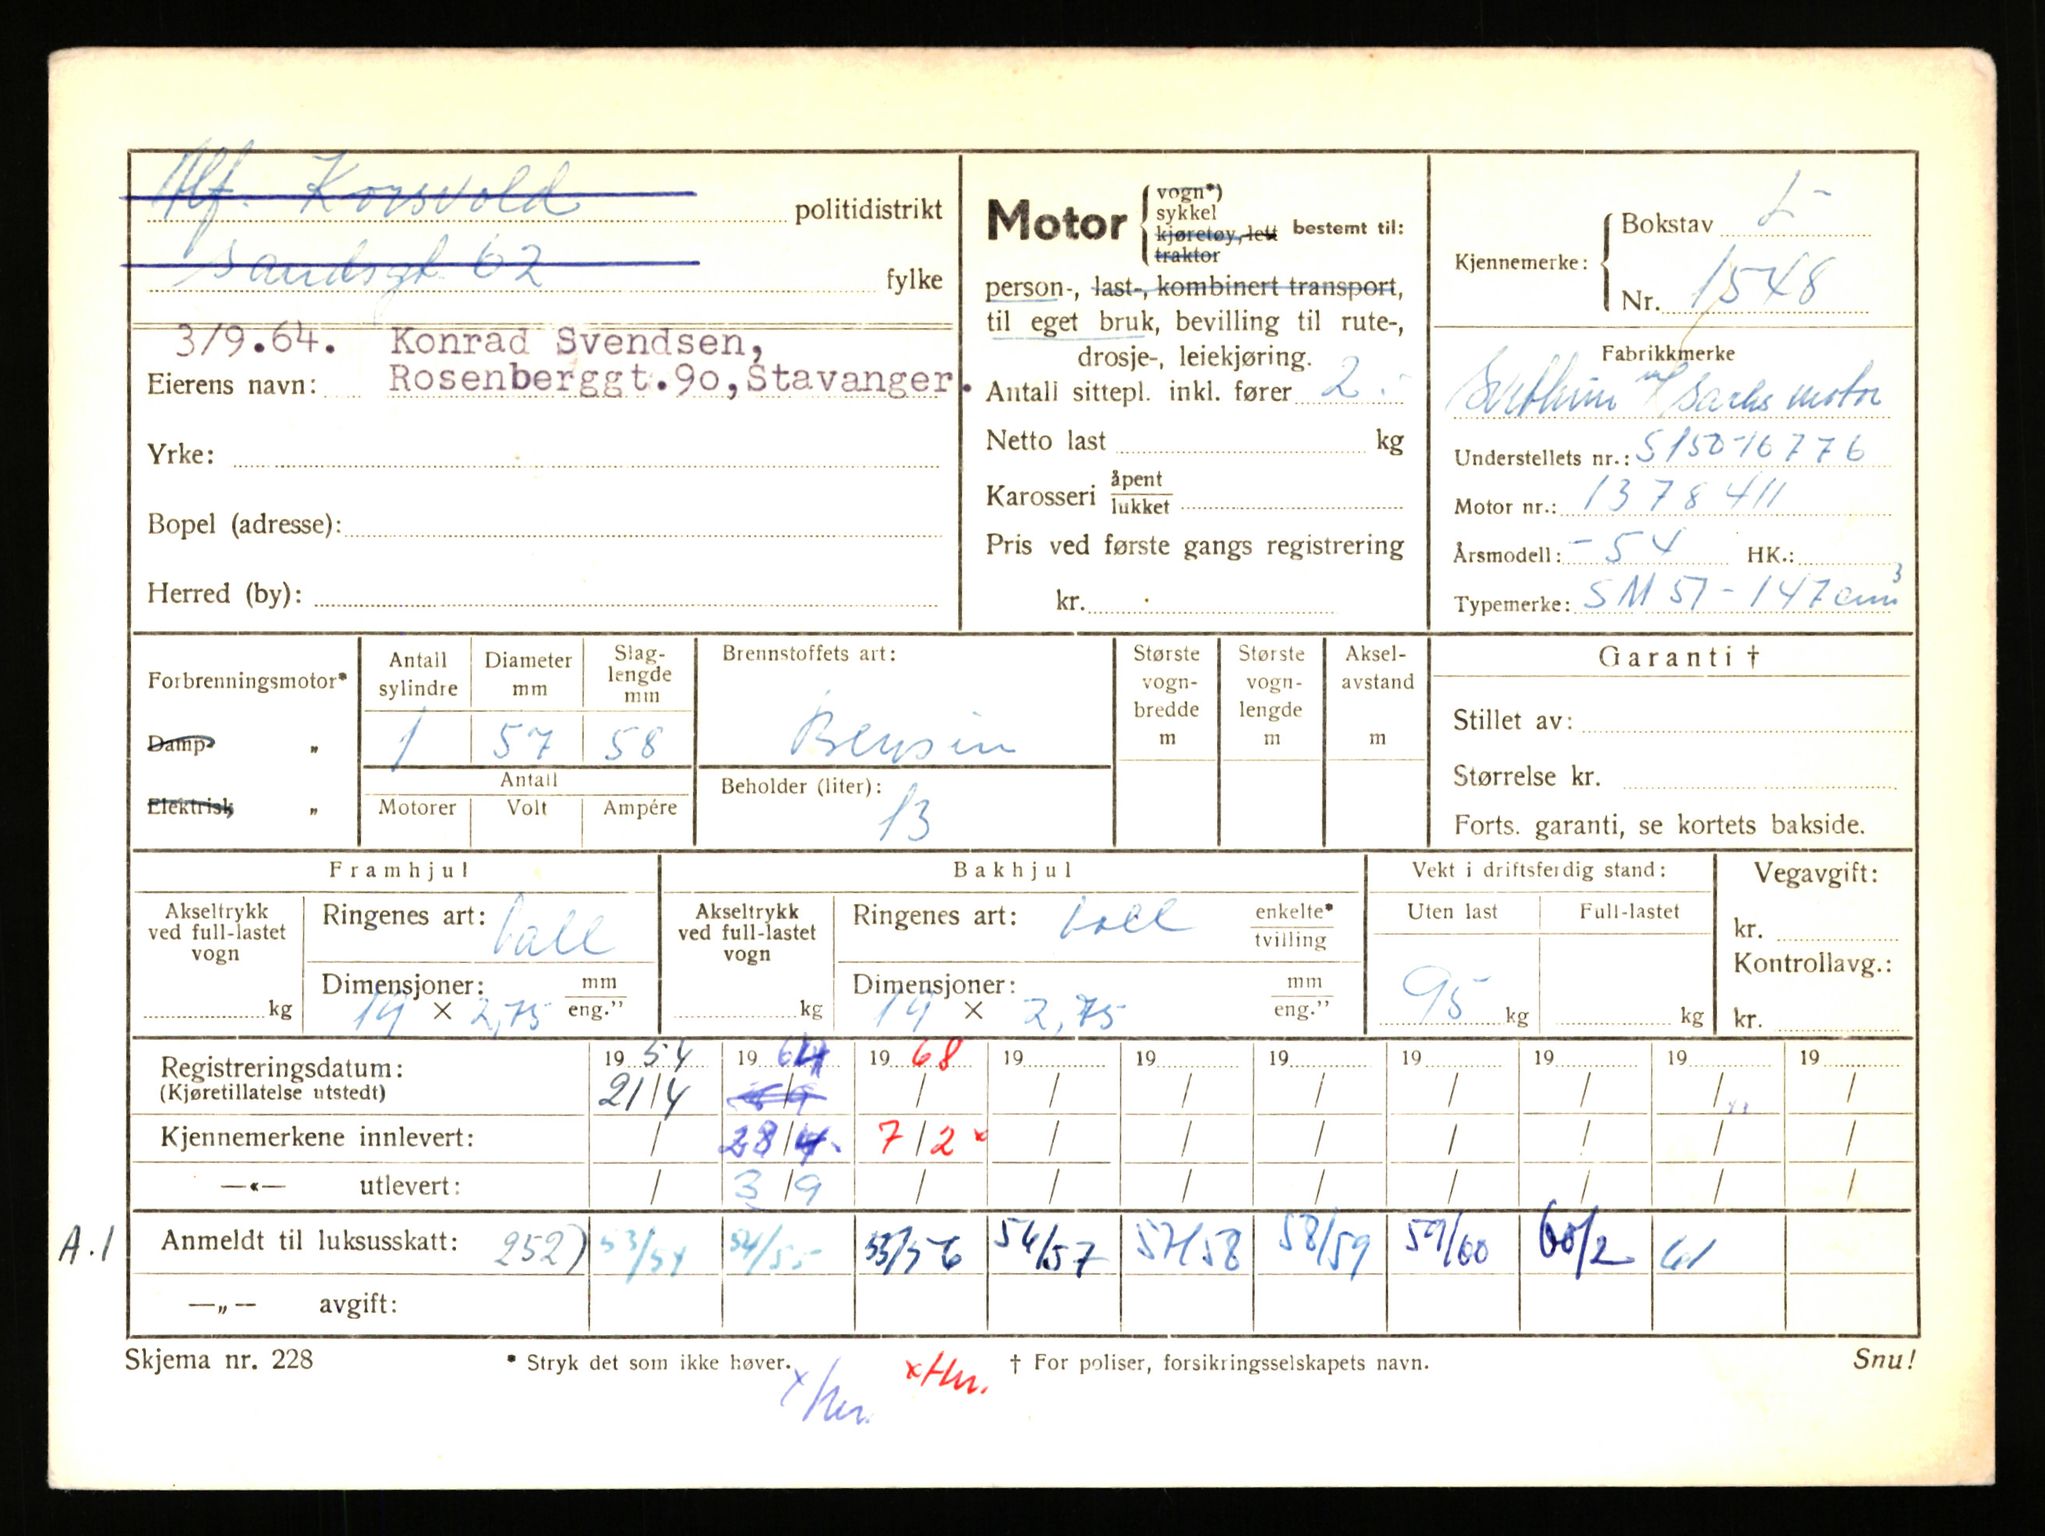 Alf. Korsvold politidistrikt
Sandsgt 62 fylke
3/9.64. Konrad Svendsen,
Eierens navn: Rosenberggt.90,Stavanger.
Yrke:
Bopel (adresse):
Herred (by):
Motor { vogn*)
sykkel
kjøretøy, lett
traktor
bestemt til:
person-, last-, kombinert transport,
til eget bruk, bevilling til rute-,
drosje-, leiekjøring.
Antall sittepl. inkl. fører 2
Netto last kg
Karosseri åpent
lukket
Pris ved første gangs registrering
kr.
Kjennemerke: { Bokstav L
Nr. 1548
Fabrikkmerke
m/ Sachs motor
Understellets nr.: S150-16776
Motor nr.: 1378411
Årsmodell: -54 HK.:
Typemerke: SM 51 - 147 cm3
Forbrenningsmotor*
Damp- „
Elektrisk „
Antall sylindre
1
Diameter mm
57
Slag-
lengde
mm
58
Antall
Motorer Volt Ampére
Brennstoffets art:
Bensin
Beholder (liter):
13
Største
vogn-
bredde
m
Største
vogn-
lengde
m
Aksel-
avstand
m
Garanti †
Stillet av:
Størrelse kr.
Forts. garanti, se kortets bakside.
Framhjul
Akseltrykk
ved full-lastet
vogn
kg
Ringenes art: ball
Dimensjoner: mm
19 × 2,75 eng.”
Bakhjul
Akseltrykk
ved full-lastet
vogn
kg
Ringenes art: ball enkelte*
tvilling
Dimensjoner: mm
19 × 2,75 eng.”
Vekt i driftsferdig stand:
Uten last Full-lastet
95 kg kg
Vegavgift:
kr.
Kontrollavg.:
kr.
Registreringsdatum: 19 54 19 64 19 68 19 19 19 19 19 19 19
(Kjøretillatelse utstedt) 21/4 / / / / / / / / /
Kjennemerkene innlevert: / 28/4 7/2 x / / / / / / /
—«— utlevert: / 3/9 / / / / / / / /
A.1 Anmeldt til luksusskatt: 252) 53/54 54/55 55/56 56/57 57/58 58/59 59/60 60/2 61
—„— avgift:
Skjema nr. 228 * Stryk det som ikke høver. † For poliser, forsikringsselskapets navn. Snu!